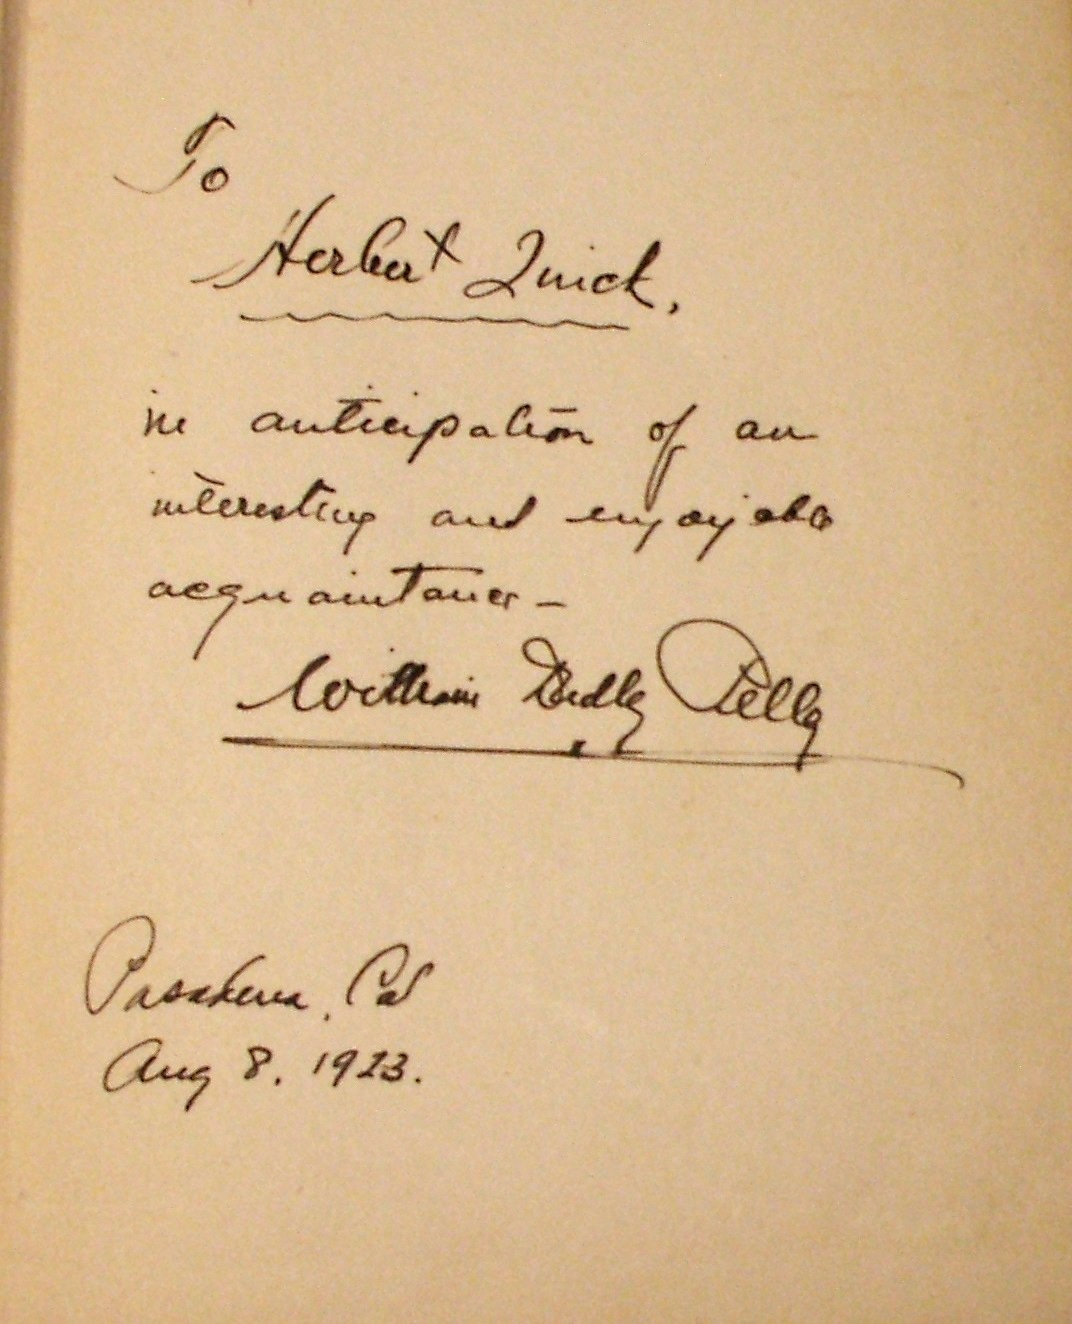 To
Herbert Quick,
in anticipation of an
interesting and enjoyable
acquaintance –
William Dudley Pelley
Pasadena, Cal
Aug 8. 1923.